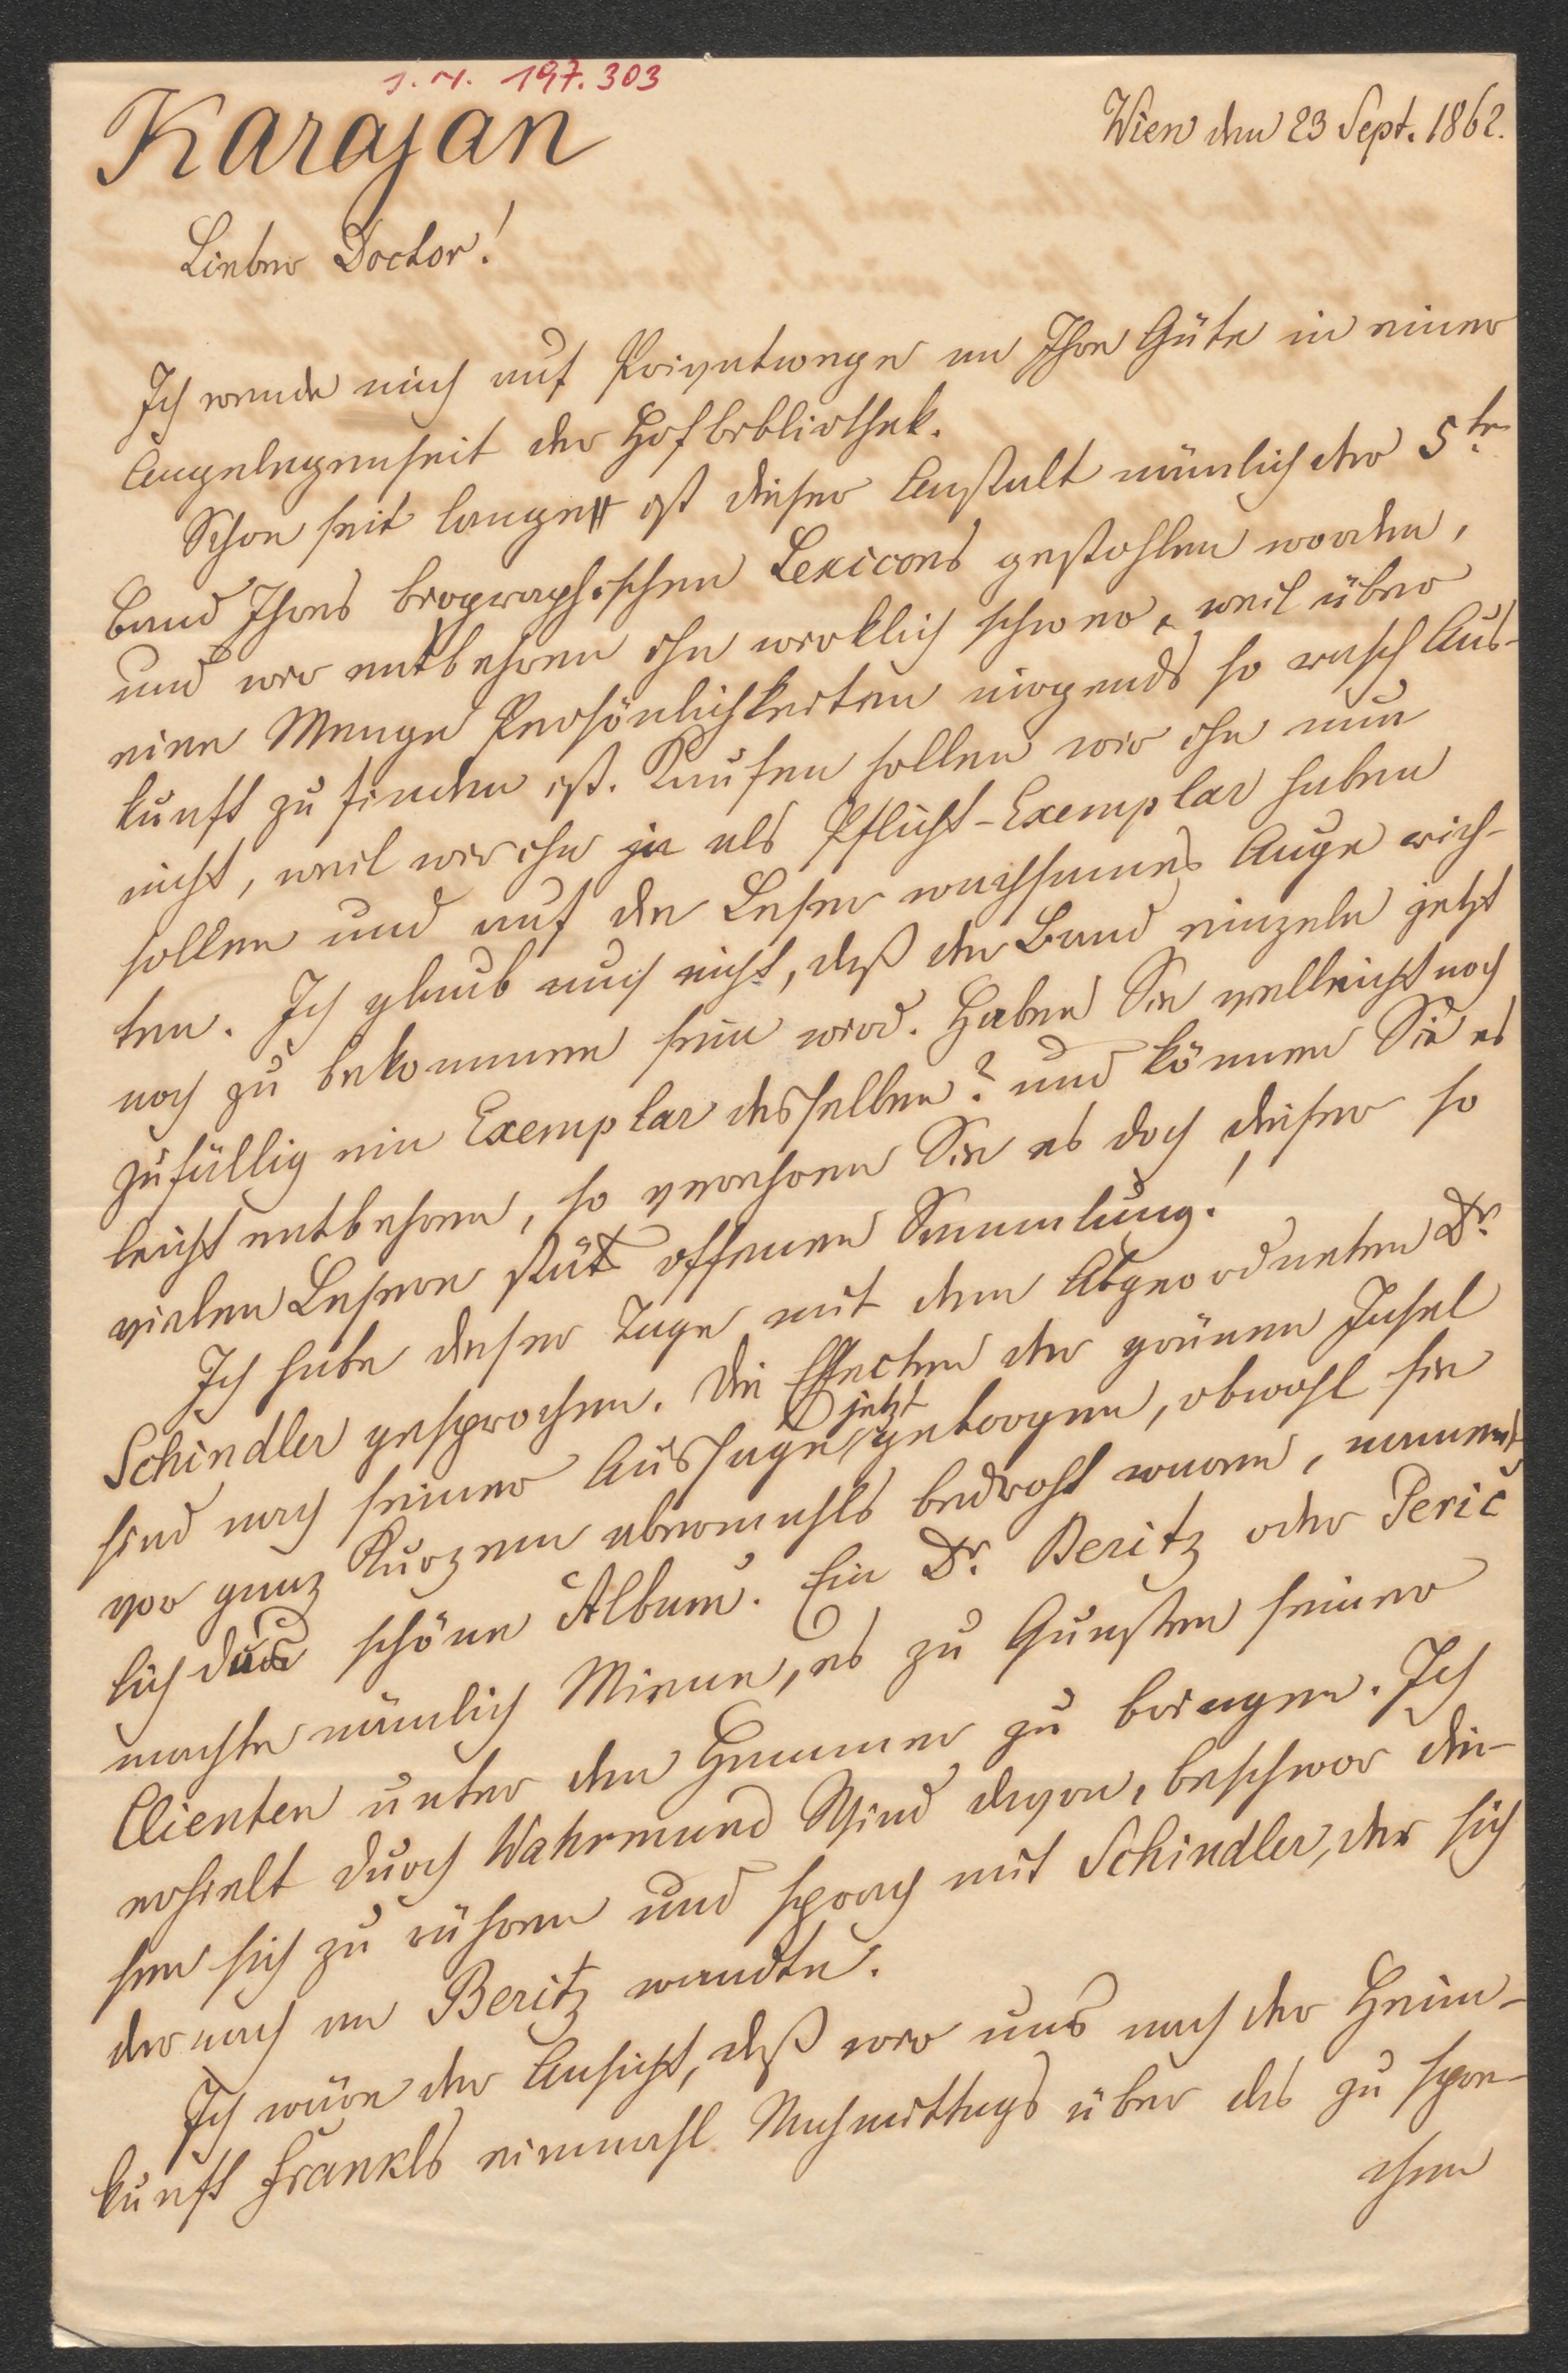 I. N. 197.303
Karajan
Wien den 23 Sept. 1862.
Lieber Doctor!
Ich wende mich auf Privatwege an Ihre Güte in einer
Angelegenheit der Hofbibliothek.
Schon seit lange ist dieser Anstalt nämlich der 5te
Band Ihres biographischen Lexicons gestohlen worden,
und wir entbehren ihn wirklich schwer, weil über
eine Menge Persönlichkeiten nirgends so rasch Aus-
kunft zu finden ist. Kaufen sollen wir ihn nun
nicht, weil wir ihn ja als Pflicht-Exemplar haben
sollen und auf die Leser wachsames Auge rich-
ten. Ich glaub auch nicht, daß der Band einzeln jetzt
noch zu bekommen sein wird. Haben Sie vielleicht noch
zufällig ein Exemplar desselben? und können Sie es
leicht entbehren, so verehren Sie es doch dieser so
vielen Lesern stäts offenen Sammlung!
Ich habe dieser Tage mit dem Abgeordneten Dr.
Schindler gesprochen. Die Effecten der grünen Insel
sind nach seiner Aussage jetzt geborgen, obwohl sie
vor ganz Kurzem abermahls bedroht waren, nament-
lich das schöne Album. Ein Dr. Beritz oder Peric
machte nämlich Miene, es zu Gunsten seiner
Clienten unter den Hammer zu bringen. Ich
erhielt durch Wahrmund Wind davon, beschwor die-
sen sich zu rühren und sprach mit Schindler, der sich
darnach an Beritz wandte.
Ich wäre der Ansicht, daß wir uns nach der Heim-
kunft Frankls einmahl Nachmittags über das zu spre-
chen